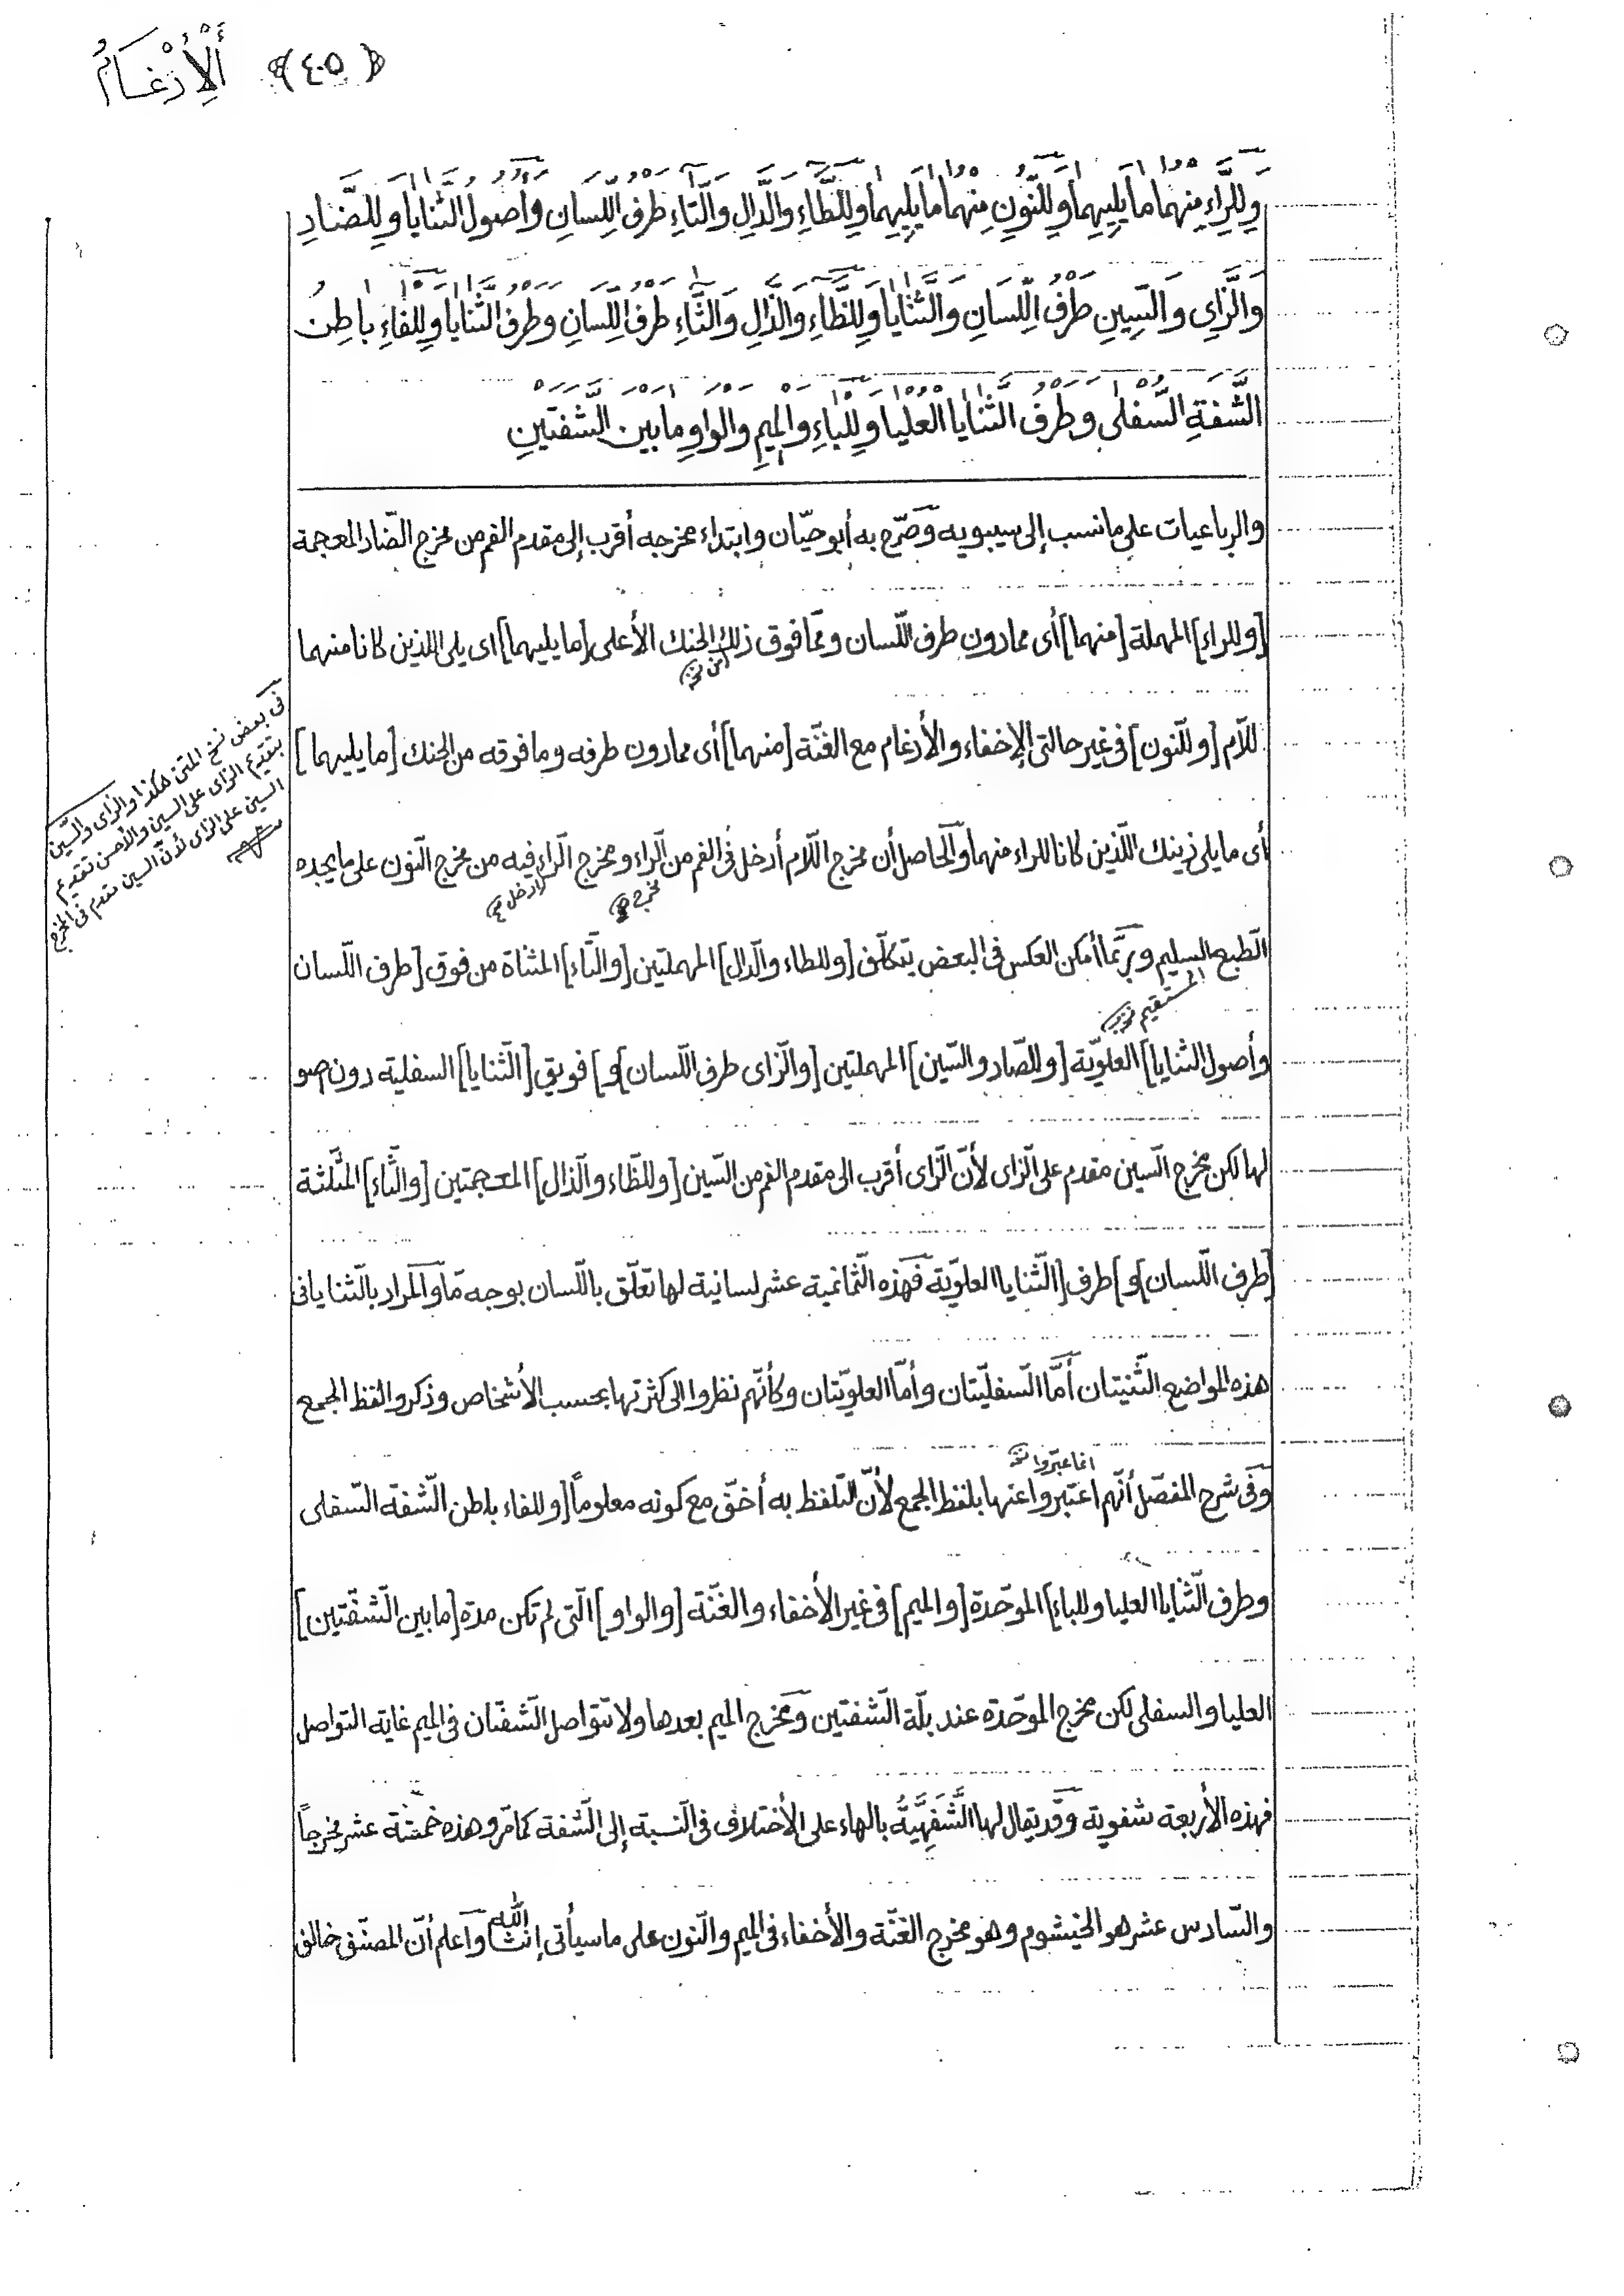 اَلْأِدْغَامُ ﴿٤٠٥﴾
وَلِلرَّاءِ مِنْهُمٰا مٰا يَلِيهِمٰا وَلِلنُّونِ مِنْهُمٰا مٰا يَلِيهِمٰا وَلِلطَّاءِ وَالدَّالِ وَالتَّاءِ طَرَفُ اللِّسَانِ وَأُصُولُ الثَّنٰايٰا وَلِلصَّادِ
وَالزَّايِ وَالسِّينِ طَرَفُ اللِّسَانِ وَالثَّنٰايٰا وَلِلظَّاءِ وَالذَّالِ وَالثَّاءِ طَرَفُ اللِّسَانِ وَطَرَفُ الثَّنٰايٰا وَلِلْفٰاءِ بٰاطِنُ
الشَّفَةِ السُّفْلٰى وَطَرَفُ الثَّنٰايٰا الْعُلْيٰا وَلِلْبٰاءِ وَالْمِيمِ وَالْوٰاوِ مٰا بَيْنَ الشَّفَتَيْنِ
والرباعيات على ما نسب إلى سيبويه وصرّح به أبو حيّان وابتداء مخرجه أقرب إلى مقدم الفم من مخرج الضّاد المعجمة
[وللراء] المهملة [منهما] أى ممادون طرف اللّسان وممّا فوق ذلك الحنك الأعلى [ما يليهما] اى يلى اللذين كانا منهما
للّام [وللّنون] فى غير حالتى الإخفاء والأدغام مع الغنّة [منهما] أى ممادون طرفه وما فوقه من الحنك [ما يليهما]
أى ما يلى ذينك اللّذين كانا للراء منهما والحاصل أن مخرج اللّام أدخل فى الفم من الرّاء ومخرج الرّاء فيه من مخرج النّون على ما يجده
مخرج
ادخل
الطّبع السليم وربّما أمكن العكس فى البعض بتكلّف [وللطاء والدّال] المهملتين [والتّاء] المثناة من فوق [طرف اللّسان
المستقيم
وأصول الثنايا] العلويّة [وللصّاد والسّين] المهملتين [والزّاى طرف اللّسان] [و] فويق [الثّنايا] السفلية دون اصو
لها لكن مخرج السّين مقدم على الزّاى لأنّ الزّاى أقرب الى مقدم الفم من السّين [وللظّاء والذّال] المعجمتين [والثّاء] المثلّثة
[طرف اللّسان] [و] طرف [الثّنايا العلويّة فهذه الثّمانية عشر لسانية لها تعلّق باللّسان بوجه مّا والمراد بالثّنايا فى
هذه المواضع الثّنيتان أمّا السّفليّتان وأمّا العلويّتان وكأنّهم نظروا الى كثرتها بحسب الأشخاص وذكروا لفظ الجمع
انما عبّروا
وفى شرح المفصّل أنّهم اعتبروا عنها بلفظ الجمع لأنّ التلفظ به أخفّ مع كونه معلوماً [وللفاء باطن الشّفة السّفلى
وطرف الثّنايا العليا وللباء] الموحّدة [والميم] فى غير الأخفاء والغنّة [والواو] الّتى لم تكن مدة [ما بين الشّفتين]
العليا والسفلى لكن مخرج الموحّدة عند بلّة الشّفتين ومخرج الميم بعدها ولا تتواصل الشّفتان فى الميم غاية التواصل
فهذه الأربعة شفوية وقد يقال لها الشَّفَهِيَّةُ بالهاء على الأختلاف فى النّسبة إلى الشّفة كما مرّ وهذه خمسة عشر مخرجاً
والسّادس عشر هو الخيشوم وهو مخرج الغنّة والأخفاء فى الميم والنّون على ما سيأتى إنشاالله واعلم أنّ المصنّف خالف
فى بعض نسخ المتن هكذا والزاى والسّين
بتقديم الزاى على السين والأحسن تقديم
السين على الزاى لأنّ السين مقدم فى المخرج